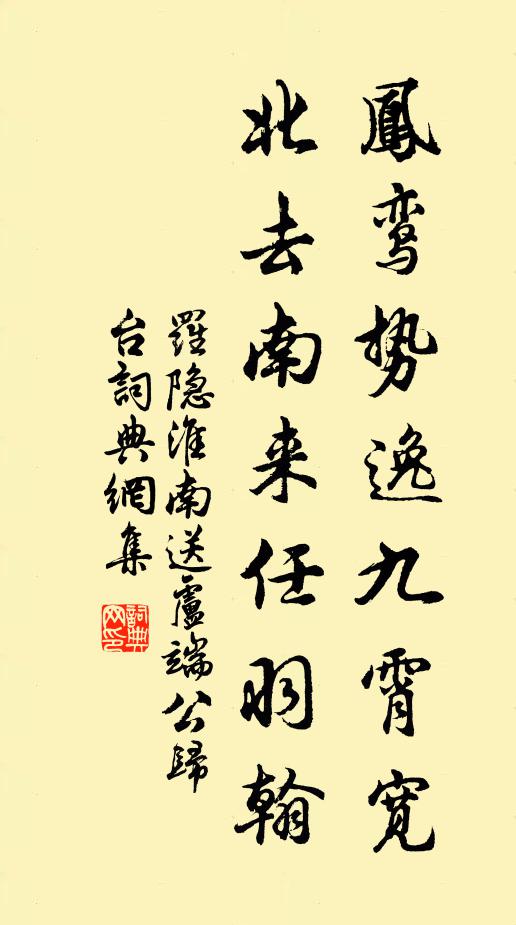 鳳鸾势逸九霄宽
北去南来任羽翰
羅隐淮南送盧端公歸
台詞典網集
詞典
网印